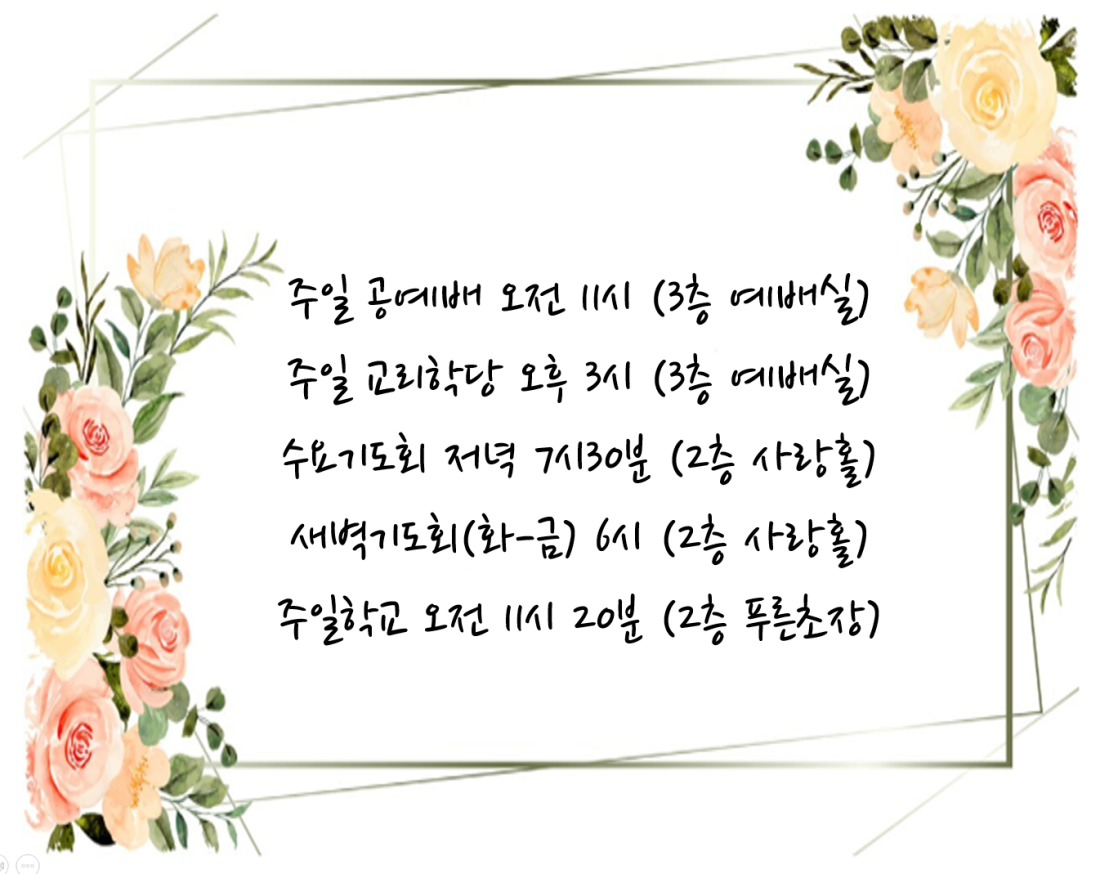 주일 공예배 오전 11시 (3층 예배실)
주일 교리학당 오후 3시 (3층 예배실)
수요기도회 저녁 7시30분 (2층 사랑홀)
새벽기도회(화-금) 6시 (2층 사랑홀)
주일학교 오전 11시 20분 (2층 푸른초장)